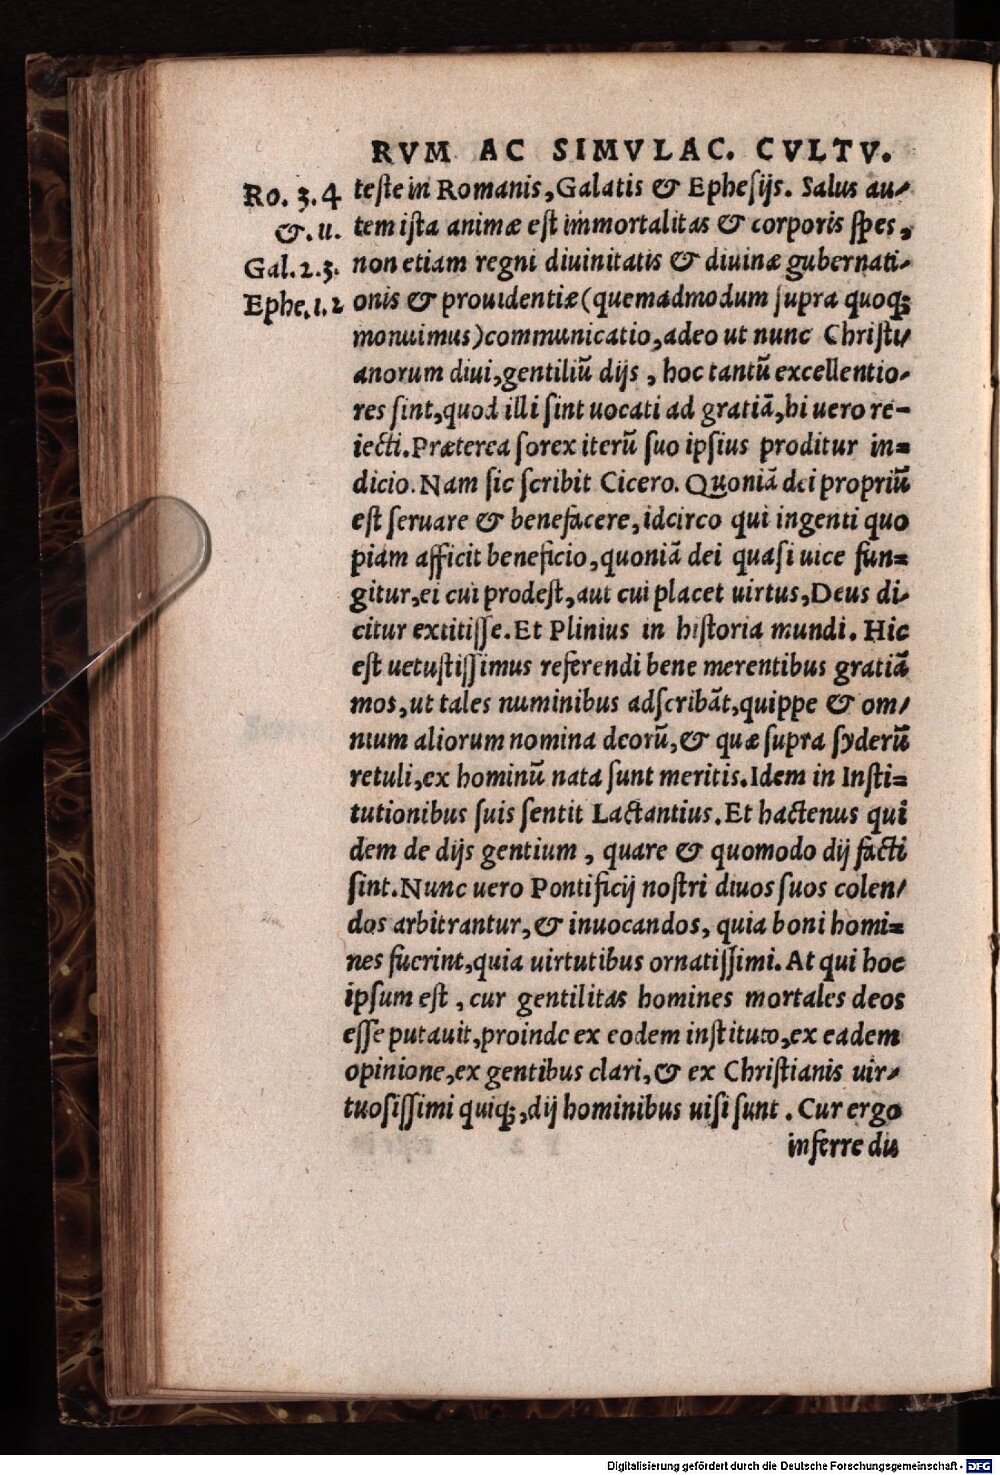 RVM AC SIMVLAC. CVLTV.
Ro. 3. 4
&. 11.
Gal. 2. 3.
Ephe. 1. 2
teste in Romanis, Galatis & Ephesijs. Salus au-
tem ista animæ est immortalitas & corporis spes,
non etiam regni diuinitatis & diuinæ gubernati-
onis & prouidentiæ (quemadmodum supra quoq;
monuimus) communicatio, adeo ut nunc Christi-
anorum diui, gentiliū dijs, hoc tantū excellentio-
res sint, quod illi sint uocati ad gratiā, hi uero re-
iecti. Præterea sorex iterū suo ipsius proditur in=
dicio. Nam sic scribit Cicero. Quoniā dei propriū
est seruare & benefacere, idcirco qui ingenti quo
piam afficit beneficio, quoniā dei quasi uice fun=
gitur, ei cui prodest, aut cui placet uirtus, Deus di-
citur extitisse. Et Plinius in historia mundi. Hic
est uetustissimus referendi bene merentibus gratiā
mos, ut tales numinibus adscribāt, quippe & om-
nium aliorum nomina deorū, & quæ supra syderū
retuli, ex hominū nata sunt meritis. Idem in Insti=
tutionibus suis sentit Lactantius. Et hactenus qui
dem de dijs gentium, quare & quomodo dij facti
sint. Nunc uero Pontificij nostri diuos suos colen-
dos arbitrantur, & inuocandos, quia boni homi=
nes fuerint, quia uirtutibus ornatissimi. At qui hoc
ipsum est, cur gentilitas homines mortales deos
esse putauit, proinde ex eodem instituto, ex eadem
opinione, ex gentibus clari, & ex Christianis uir-
tuosissimi quiq;, dij hominibus uisi sunt. Cur ergo
inferre du
Digitalisierung gefördert durch die Deutsche Forschungsgemeinschaft - DFG